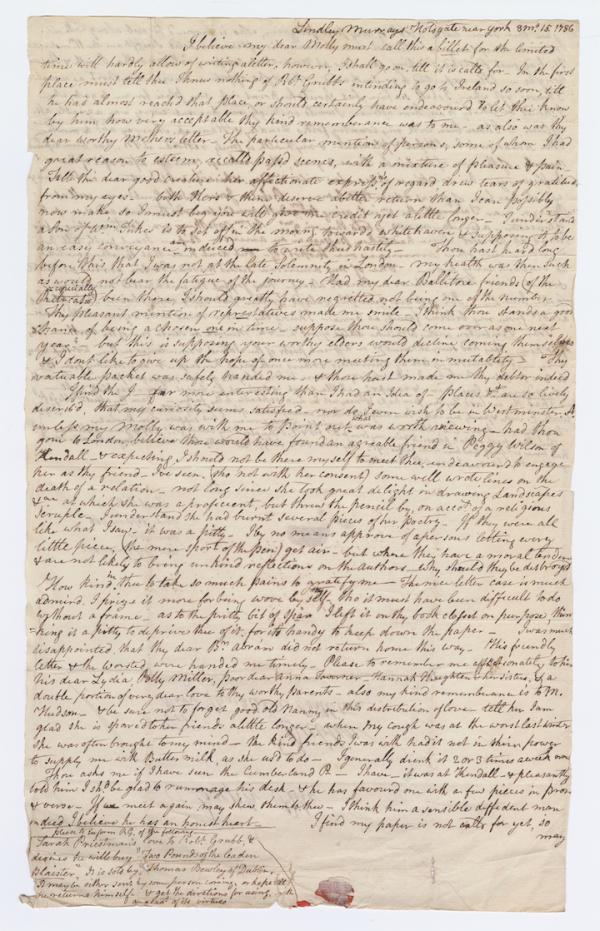 Lindley Murrays Holsgate near York 3 mo. 15 1786
I believe my dear Molly must call this a billet for the limited
time will hardly allow of writing a letter, however, I shall go on till it is calld for - In the first
place must tell thee I knew nothing of Robt Grubbs intending to go to Ireland so soon, till
he has almost reach'd that place, or should certainly have endeavour'd to let thee know
by him how very acceptable thy kind remembrance was to me - as also was thy
dear worthy Mothers letter - The particular mention of persons, some of whom I had
great reason to esteem, recalld passd scenes, with a mixture of pleasure & pain -
Tell the dear good creature her affectionate expresss of regard drew tears of gratitude
from my eyes - both Hers & thine deserve a better return than I can possibly
now make, so I must beg you will give me credit yet a little longer - I understand
a Son of Tukes is to set off in the morng towards Whitehaven & supposing to be
an easy conveyance induced me to write thus hastily - Thou hast heard long
before this that I was not at the late Solemnity in London - my health was then such
as would not bear the fatigue of the journey - Had my dear Ballitore friends (of the
especially
been there, I should greatly have regretted not being one of the number -
Thy pleasant mention of representatives made me smile - I think thou stands a good
chance of being a chosen one in time - suppose thou should come over as one next
year - but this is supposing your worthy elders would decline coming themselves
& I dont like to give up the hope of once more meeting them in mutability - Thy
valuable packet was safely handed me - & thou hast made me thy debtor indeed
I find the J far more interesting than I had an Idea of - Places &c are so lively
describ'd, that my curiosity seems satisfied - nor do I even wish to be in Westminster A
unless my Molly was with me to point out what was worth viewing - had thou
gone to London, believe thou would have found an agreable friend in Peggy Wilson of
Kendall - & expecting I should not be there myself to meet thee, endeavourd to engage
her as thy friend - I've seen (tho not with her consent) some well wrote lines on the
death of a relation - not long since she took great delight in drawing Landscapes
&c at which she was a proficient, but threw the pencil by, on acct of a religious
scruple - I understand she had burnt several pieces of her poetry - If they were all
like what I saw - it was a pitty - I by no means approve of a persons letting every
little piece, (the mere sport of the pen) get air - but where they have a moral tendency
& are not likely to bring unkind reflections on the authors - why should they be destroyd
How kind in thee to take so much pains to gratify me - The nice letter case is much
admired. I prize it more for being wove by thyself, tho it must have been difficult to do
without a frame - as to the pritty bit of Spar I left it on thy book closet on purpose, thin
king it a pitty to deprive thee of it, for its handy to keep down the paper - I was much
disappointed that thy dear Br Abram did not return home this way - His friendly
letter & the worsted were handed me timely - Please to remember me affectionately to him
his dear Lydia, Polly Miller, poor dear Anna Taverner - Hannah Haughton Christies, & a
double portion of very dear love to thy worthy parents - also my kind remembrance is to M.
Hudson - & be sure not to forget good old Nanny in this distribution of love - tell her I am
glad she is spared to her friends a little longer - when my cough was at the worst last winter
she was often brought to my mind - the kind friends I was with had it not in their power
to supply me with Butter milk, as she us'd to do - I generally drink it 2 or 3 times a week now
Thou asks me if I have seen the Cumberland P. - I have - it was at Kendall - & pleasantly
told him I shd be glad to rummage his desk - & he has favourd me with a few pieces in prose
& verse - If we meet again, may shew them to thee - I think him a sensible diffident man
indeed I believe he has an honest heart - I find my paper is not calld for yet, so
may
please to inform R.G. of the following
Sarah Priestmans love to Robt Grubb, &
desires he will buy Two Pounds of the leaden
Plaister, It is sold by Thomas Bewley of Dublin,
It may be either sent by some person coming, or hope
he returns himself & get the directions for using, with
an acct of its virtues